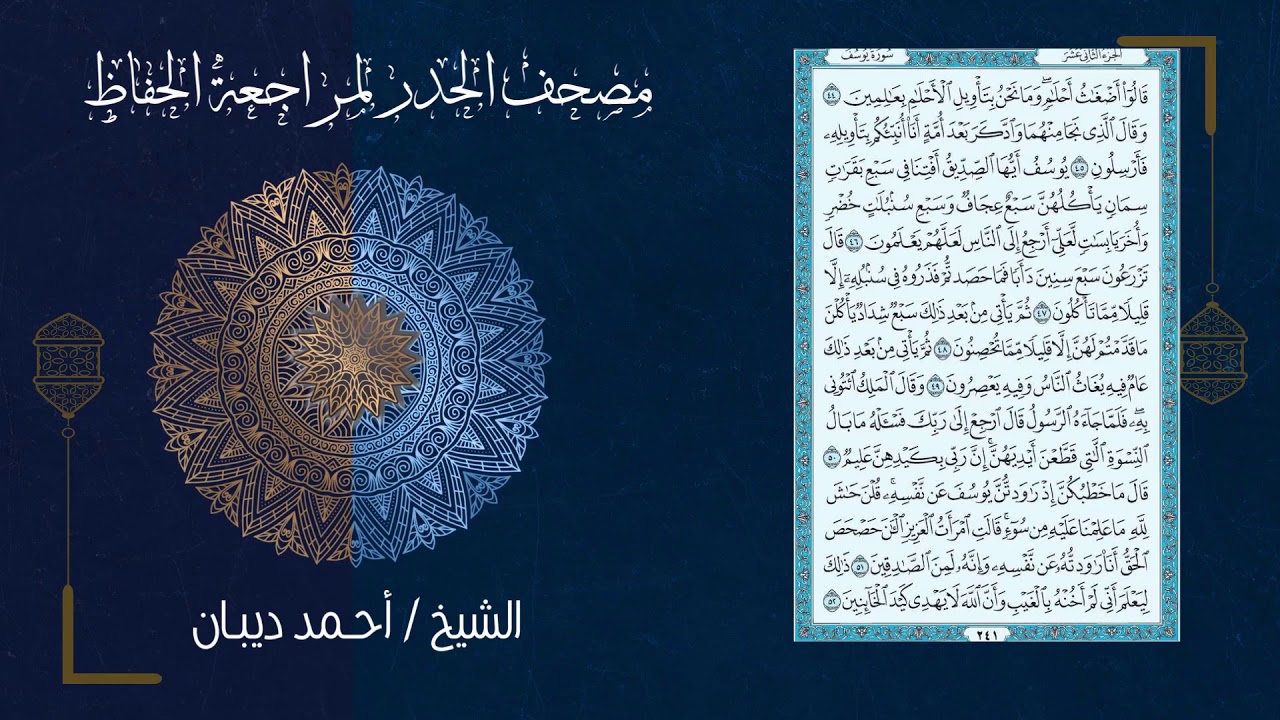 مصحف الحدر لمراجعة الحفاظ
الشيخ / أحمد ديبان
الجزء الثاني عشر
سورة يوسف
قَالُوٓا۟ أَضْغَٰثُ أَحْلَٰمٍۢ ۖ وَمَا نَحْنُ بِتَأْوِيلِ ٱلْأَحْلَٰمِ بِعَٰلِمِينَ ٤٤
وَقَالَ ٱلَّذِى نَجَا مِنْهُمَا وَٱدَّكَرَ بَعْدَ أُمَّةٍ أَنَا۠ أُنَبِّئُكُم بِتَأْوِيلِهِۦ
فَأَرْسِلُونِ ٤٥ يُوسُفُ أَيُّهَا ٱلصِّدِّيقُ أَفْتِنَا فِى سَبْعِ بَقَرَٰتٍۢ
سِمَانٍۢ يَأْكُلُهُنَّ سَبْعٌ عِجَافٌۭ وَسَبْعِ سُنۢبُلَٰتٍ خُضْرٍۢ
وَأُخَرَ يَابِسَٰتٍۢ لَّعَلِّىٓ أَرْجِعُ إِلَى ٱلنَّاسِ لَعَلَّهُمْ يَعْلَمُونَ ٤٦ قَالَ
تَزْرَعُونَ سَبْعَ سِنِينَ دَأَبًۭا فَمَا حَصَدتُّمْ فَذَرُوهُ فِى سُنۢبُلِهِۦٓ إِلَّا
قَلِيلًۭا مِّمَّا تَأْكُلُونَ ٤٧ ثُمَّ يَأْتِى مِنۢ بَعْدِ ذَٰلِكَ سَبْعٌۭ شِدَادٌۭ يَأْكُلْنَ
مَا قَدَّمْتُمْ لَهُنَّ إِلَّا قَلِيلًۭا مِّمَّا تُحْصِنُونَ ٤٨ ثُمَّ يَأْتِى مِنۢ بَعْدِ ذَٰلِكَ
عَامٌۭ فِيهِ يُغَاثُ ٱلنَّاسُ وَفِيهِ يَعْصِرُونَ ٤٩ وَقَالَ ٱلْمَلِكُ ٱئْتُونِى
بِهِۦ ۖ فَلَمَّا جَآءَهُ ٱلرَّسُولُ قَالَ ٱرْجِعْ إِلَىٰ رَبِّكَ فَسْـَٔلْهُ مَا بَالُ
ٱلنِّسْوَةِ ٱلَّٰتِى قَطَّعْنَ أَيْدِيَهُنَّ ۚ إِنَّ رَبِّى بِكَيْدِهِنَّ عَلِيمٌۭ ٥٠
قَالَ مَا خَطْبُكُنَّ إِذْ رَٰوَدتُّنَّ يُوسُفَ عَن نَّفْسِهِۦ ۚ قُلْنَ حَٰشَ
لِلَّهِ مَا عَلِمْنَا عَلَيْهِ مِن سُوٓءٍۢ ۚ قَالَتِ ٱمْرَأَتُ ٱلْعَزِيزِ ٱلْـَٰٔنَ حَصْحَصَ
ٱلْحَقُّ أَنَا۠ رَٰوَدتُّهُۥ عَن نَّفْسِهِۦ وَإِنَّهُۥ لَمِنَ ٱلصَّٰدِقِينَ ٥١ ذَٰلِكَ
لِيَعْلَمَ أَنِّى لَمْ أَخُنْهُ بِٱلْغَيْبِ وَأَنَّ ٱللَّهَ لَا يَهْدِى كَيْدَ ٱلْخَآئِنِينَ ٥٢
٢٤١